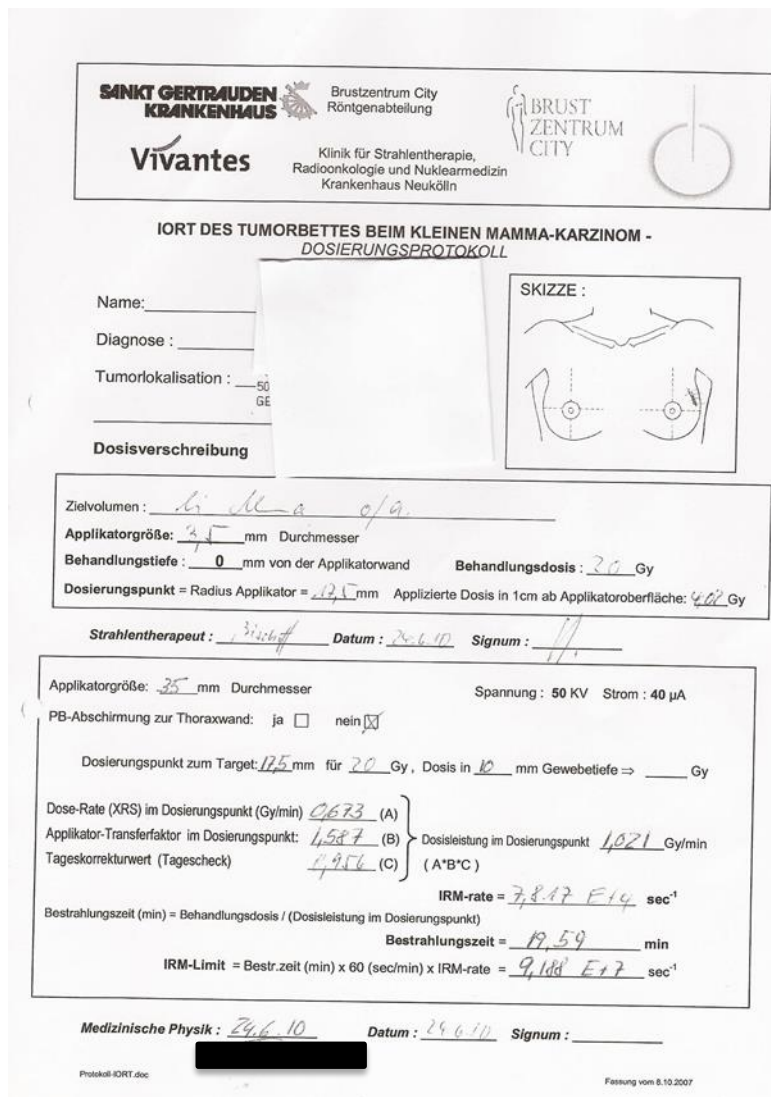 SANKT GERTRAUDEN KRANKENHAUS
Brustzentrum City
Röntgenabteilung
BRUST ZENTRUM CITY
Vivantes
Klinik für Strahlentherapie,
Radioonkologie und Nuklearmedizin
Krankenhaus Neukölln
IORT DES TUMORBETTES BEIM KLEINEN MAMMA-KARZINOM -
DOSIERUNGSPROTOKOLL
SKIZZE :
Name:
Diagnose :
Tumorlokalisation : 50
GE
Dosisverschreibung
Zielvolumen : li
Applikatorgröße: 3,5 mm Durchmesser
Behandlungstiefe : 0 mm von der Applikatorwand Behandlungsdosis : 20 Gy
Dosierungspunkt = Radius Applikator = 17,5 mm Applizierte Dosis in 1cm ab Applikatoroberfläche: 4,02 Gy
Strahlentherapeut : Datum : 24.6.10 Signum :
Applikatorgröße: 35 mm Durchmesser Spannung : 50 KV Strom : 40 µA
PB-Abschirmung zur Thoraxwand: ja nein
Dosierungspunkt zum Target: 17,5 mm für 20 Gy , Dosis in 10 mm Gewebetiefe ⇒ Gy
Dose-Rate (XRS) im Dosierungspunkt (Gy/min) 0,673 (A)
Applikator-Transferfaktor im Dosierungspunkt: 1,587 (B) Dosisleistung im Dosierungspunkt 1,021 Gy/min
Tageskorrekturwert (Tagescheck) 0,956 (C) ( A*B*C )
IRM-rate = 7,817 E+4 sec⁻¹
Bestrahlungszeit (min) = Behandlungsdosis / (Dosisleistung im Dosierungspunkt)
Bestrahlungszeit = 19,59 min
IRM-Limit = Bestr.zeit (min) x 60 (sec/min) x IRM-rate = 9,188 E+7 sec⁻¹
Medizinische Physik : 24.6.10 Datum : 24.6.10 Signum :
Protokoll-IORT.doc
Fassung vom 8.10.2007